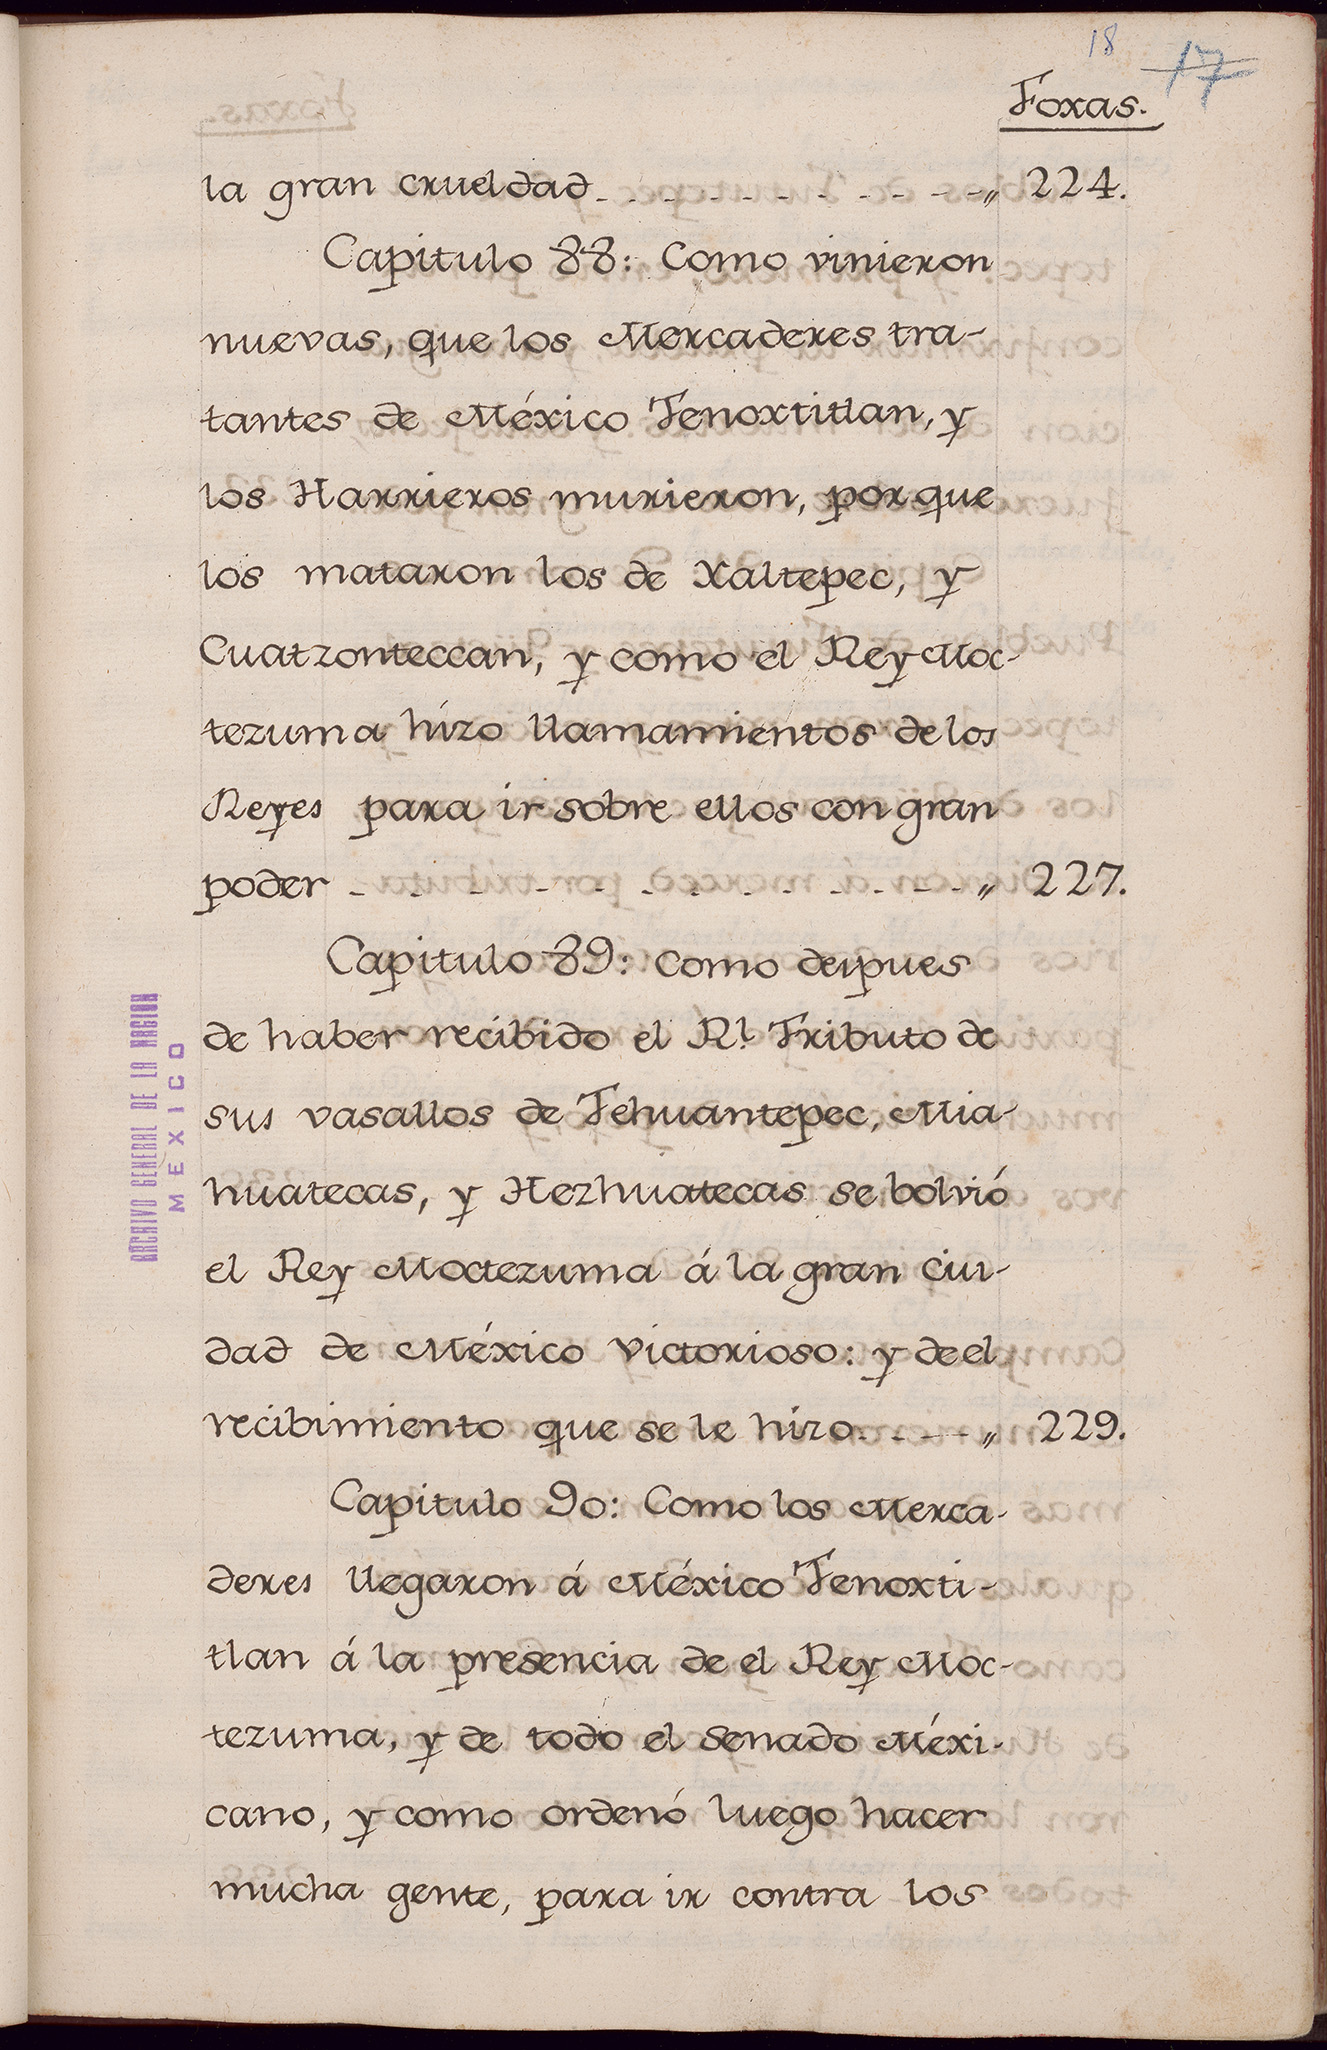 18 17
Foxas.
la gran crueldad - - - - - - - - - - „ 224.
Capitulo 88: Como vinieron
nuevas, que los Mercaderes tra-
tantes de México Tenoxtitlan, y
los Harrieros murieron, porque
los mataron los de Xaltepec, y
Cuatzonteccan, y como el Rey Moc-
tezuma hizo llamamientos de los
Reyes para ir sobre ellos con gran
poder - - - - - - - - - - - „ 227.
Capitulo 89: Como despues
de haber recibido el Rl. Tributo de
sus vasallos de Tehuantepec, Mia-
huatecas, y Hezhuatecas se bolvió
el Rey Moctezuma á la gran Ciu-
dad de México victorioso: y de el
recibimiento que se le hizo - - - - „ 229.
Capitulo 90: Como los Merca-
deres llegaron á México Tenoxti-
tlan á la presencia de el Rey Moc-
tezuma, y de todo el Senado Méxi-
cano, y como ordenó luego hacer
mucha gente, para ir contra los
ARCHIVO GENERAL DE LA NACION
MEXICO